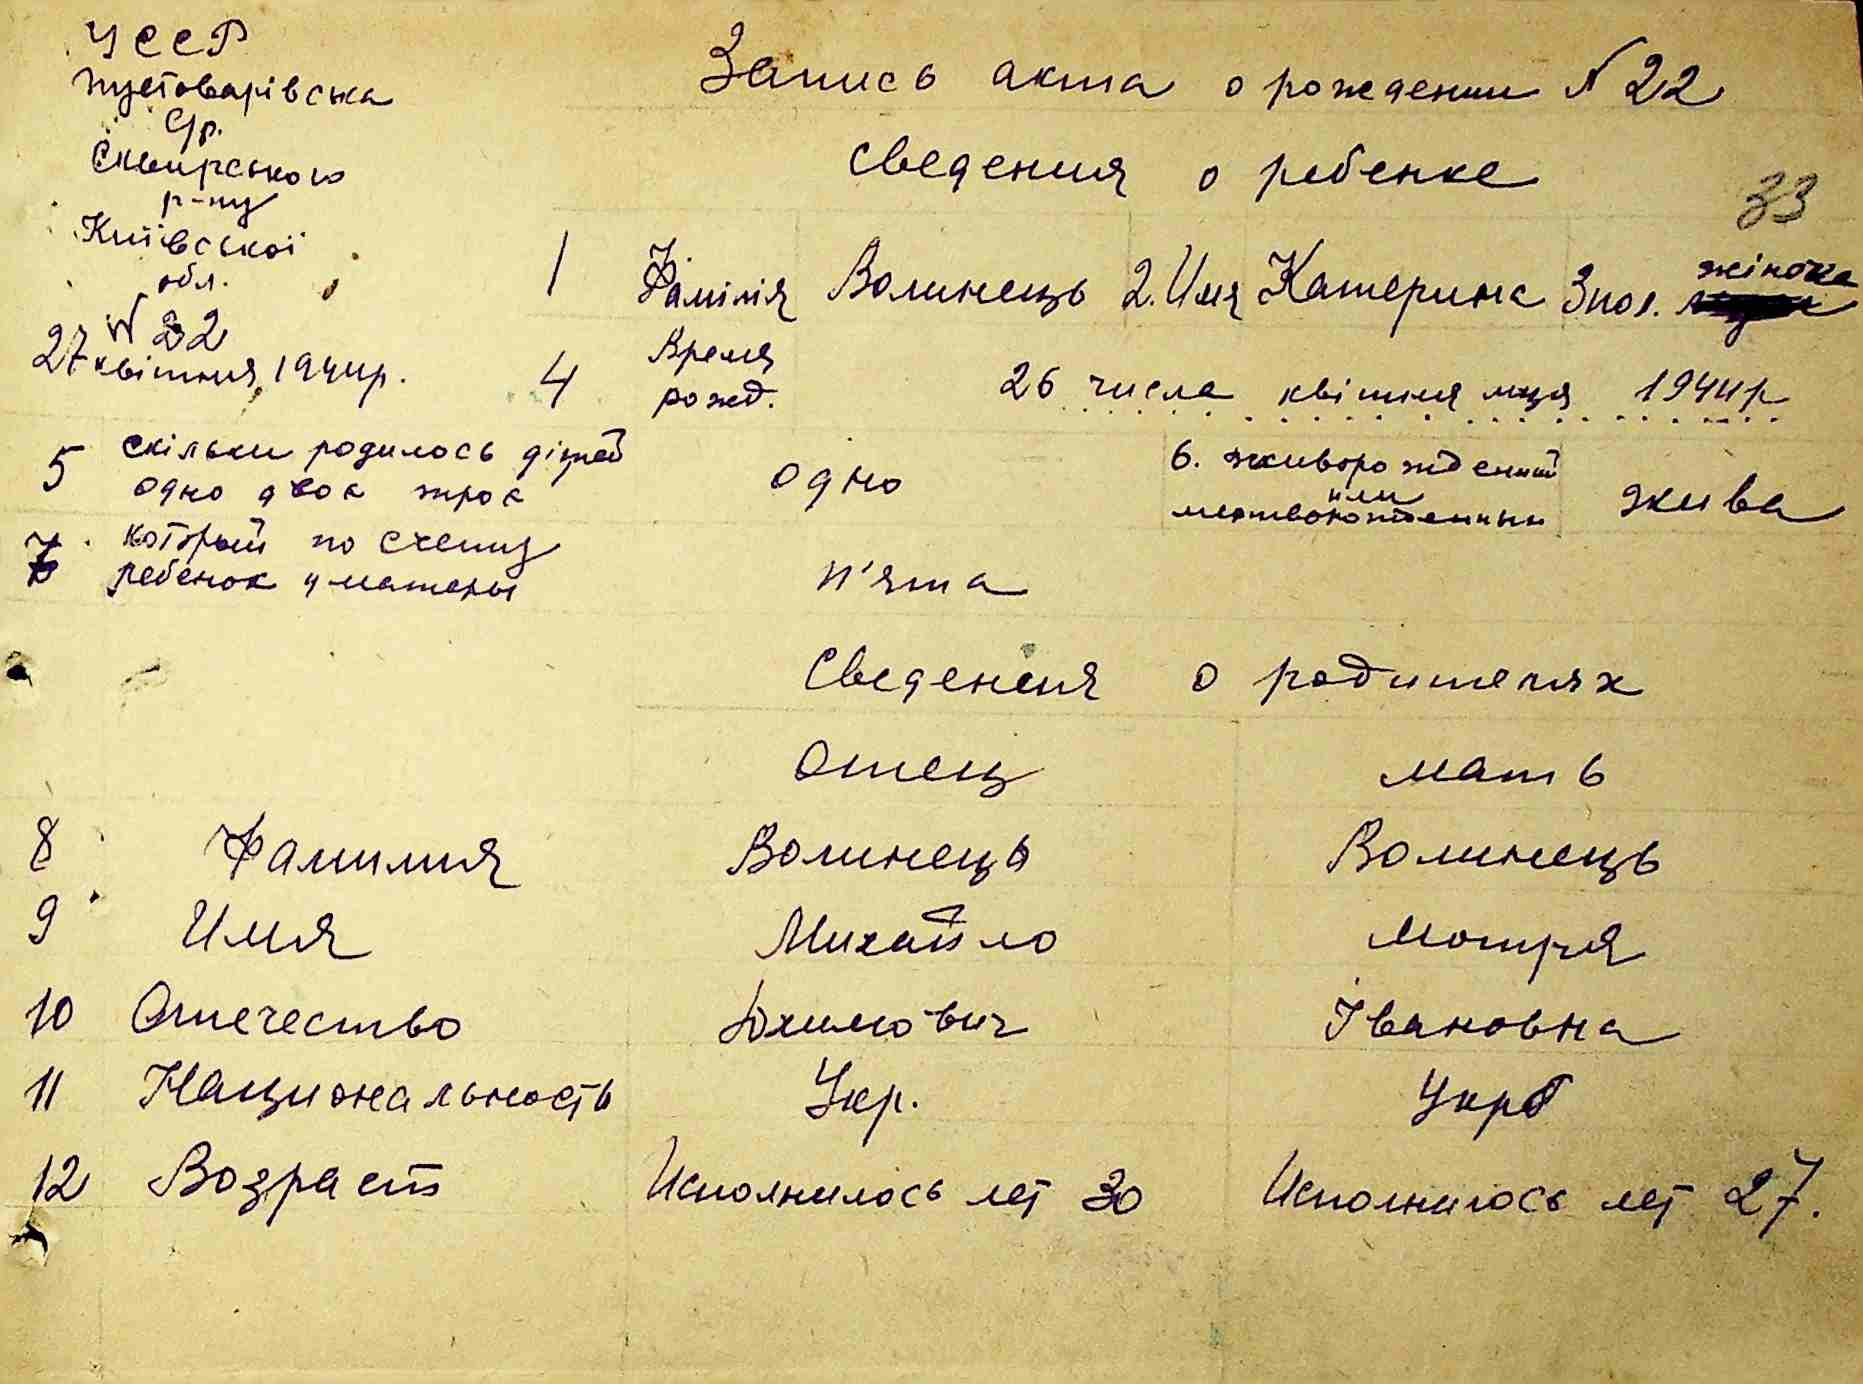 УССР
Пустоварівська
С/р.
Сквирського
р-ну
Київської
обл.
N 22
27 квітня 1944р.
Запись акта о рождении N 22
Сведения о ребенке
33
1 Фамілія Волинець 2. Имя Катерина 3 пол. жіноча
4 Время рожд. 26 числа квітня мця 1944р
5 скільки родилось дітей
одно двоє троє
одно
6. живорожденный
или
мертворожденный
жива
7. который по счету
ребенок у матери
п'ята
Сведения о родителях
Отец мать
8 Фамилия Волинець Волинець
9 Имя Михайло Мотря
10 Отчество Юхимович Івановна
11 Национальность Укр. Укр
12 Возраст Исполнилось лет 30 Исполнилось лет 27.